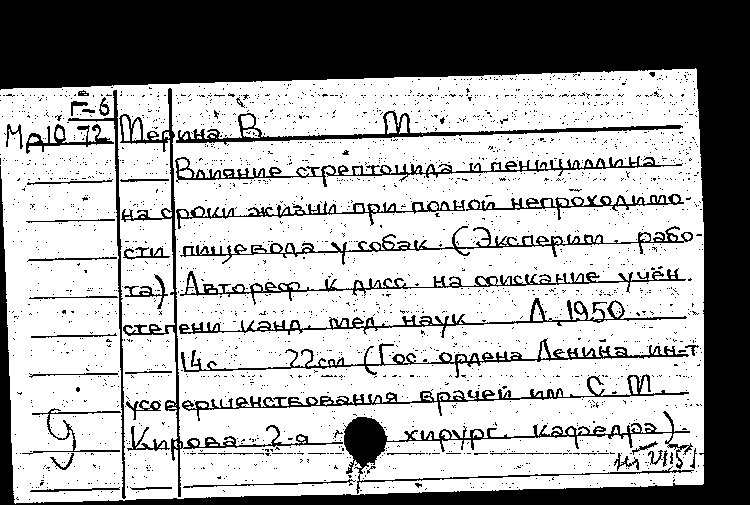 Г-6
МД10 72 Мерина В М
Влияние стрептоцида и пенициллина
на сроки жизни при полной непроходимо-
сти пищевода у собак. (Эксперим. рабо-
та). Автореф. к дисс. на соискание учён.
степени канд. мед. наук. Л. 1950.
14с 22см (Гос. ордена Ленина ин-т
усовершенствования врачей им. С. М.
Кирова 2-я хирург. кафедра)
9